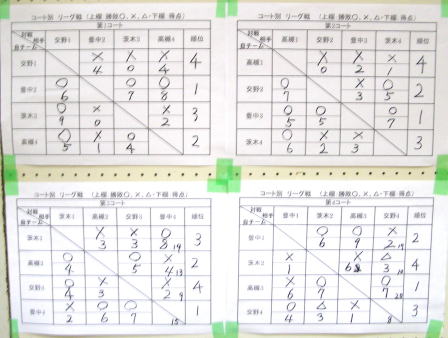 コート別 リーグ戦 (上欄 勝敗○、×、△・下欄 得点)
第1コート
対戦相手 自チーム 交野1 豊中2 茨木3 高槻4 順位
交野1 × 4 × 0 × 4 4
豊中2 ○ 6 ○ 7 ○ 8 1
茨木3 ○ 9 × 0 × 2 3
高槻4 ○ 5 × 1 ○ 4 2
コート別 リーグ戦 (上欄 勝敗○、×、△・下欄 得点)
対戦相手 自チーム 高槻1 交野2 豊中3 茨木4 順位
高槻1 × 0 × 2 × 1 4
○ 7 × 3 ○ 5 2
○ 5 ○ 5 ○ 7 1
茨木4 ○ 6 × 2 × 3 3
コート別 リーグ戦 (上欄 勝敗○、×、△・下欄 得点)
対戦相手 自チーム 茨木1 高槻2 交野3 豊中4 順位
茨木1 × 3 × 3 ○ 8 19 3
高槻2 ○ 4 ○ 5 × 4 13 2
交野3 ○ 4 × 3 × 2 9 4
豊中4 × 2 ○ 6 ○ 7 15 1
コート別 リーグ戦 (上欄 勝敗○、×、△・下欄 得点)
第4コート
対戦相手 自チーム 豊中1 茨木2 高槻3 交野4 順位
豊中1 ○ 6 ○ 9 × 2 2
茨木2 × 1 × △ 3 4
高槻3 × 6 ○ 7 ○ 7 1
交野4 ○ 4 △ 3 × 1 8 3